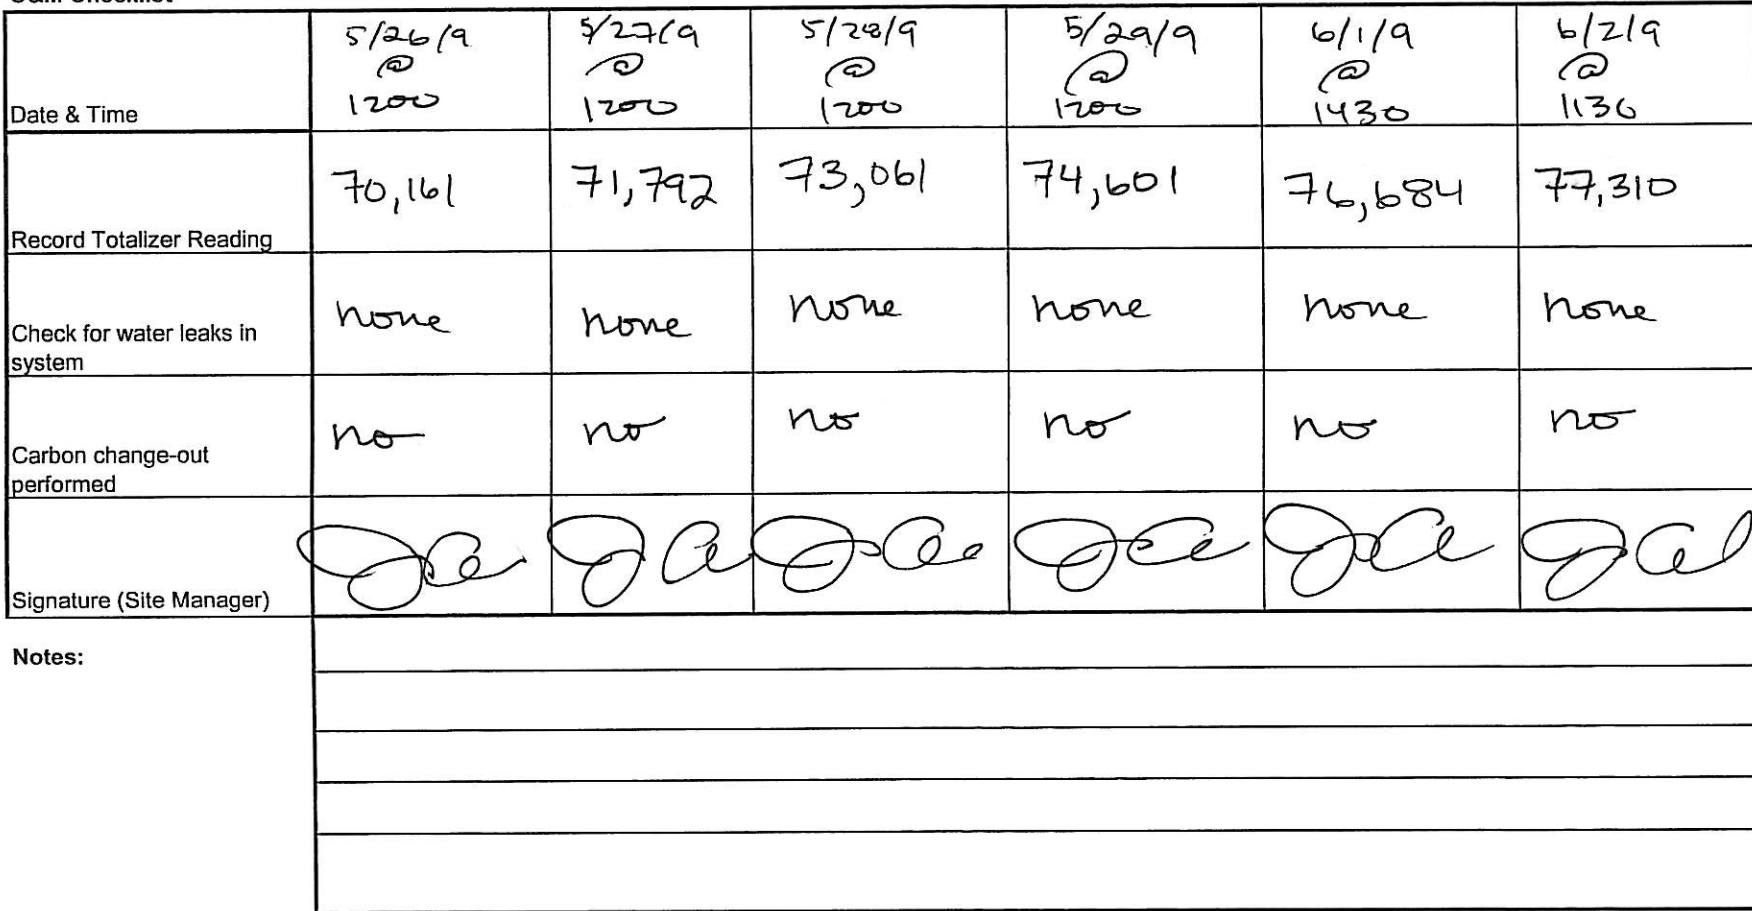 5/26/9 5/27/9 5/28/9 5/29/9 6/1/9 6/2/9
@ @ @ @ @ @
Date & Time 1200 1200 1200 1200 1430 1130
Record Totalizer Reading 70,161 71,792 73,061 74,601 76,684 77,310
Check for water leaks in
system none none none none none none
Carbon change-out
performed no no no no no no
Signature (Site Manager)
Notes: